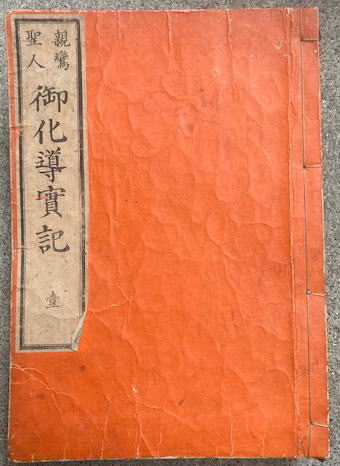 親鸞
聖人
御化導實記
壹